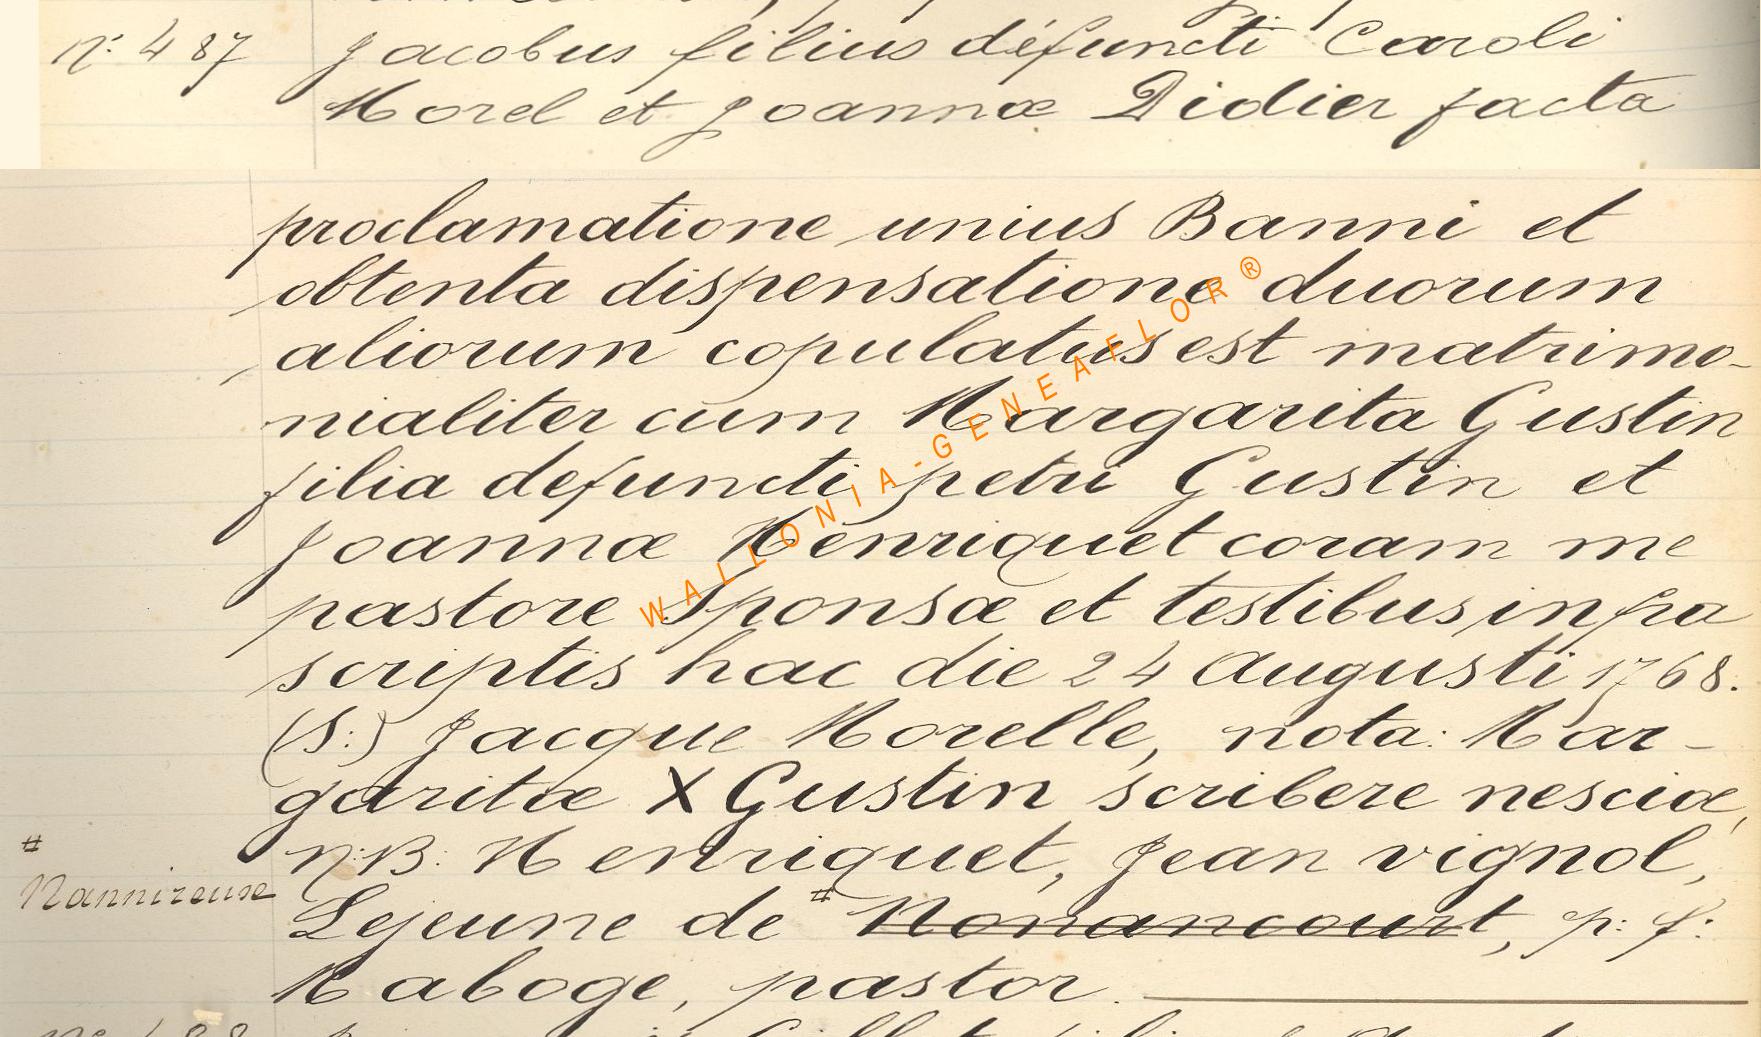 N: 487 Jacobus filius défuncti Caroli
Morel et Joannæ Didier facta
proclamatione unius Banni et
obtenta dispensatione duorum
aliorum copulatus est matrimo-
nialiter cum Margarita Gustin
filia defuncti petri Gustin et
Joannæ Henriquet coram me
pastore Sponsæ et testibus infra
scriptis hac die 24 Augusti 1768.
(S:) Jacque Morelle, nota: Mar-
garitæ X Gustin scribere nesciæ,
N:B: Henriquet, Jean vignol,
#
Nannireuse
Lejeune de # Nonancourt, p: f:
Maboge, pastor.
WALLONIA-GENEAFLOR®